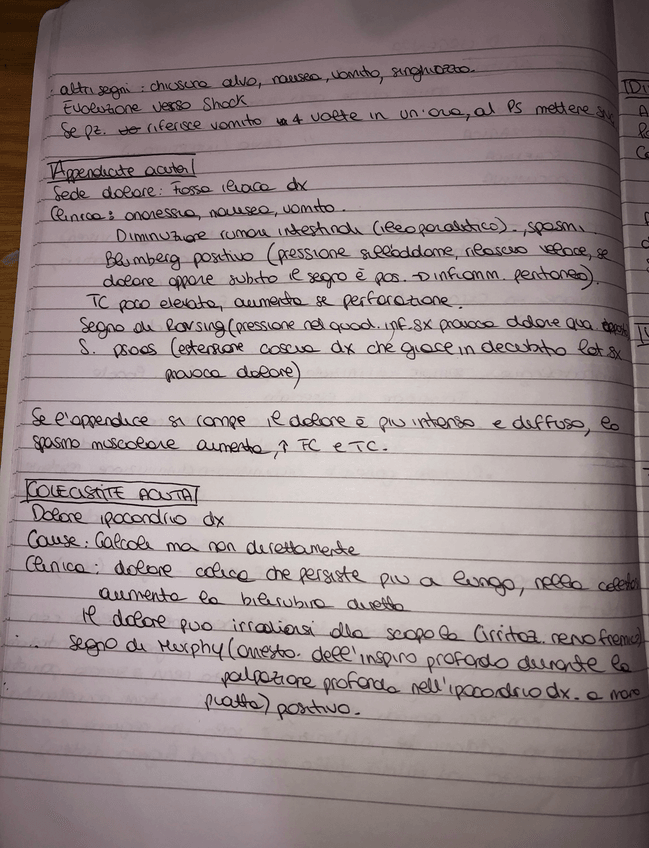 : altri segni : chiusura alvo, nausea, vomito, singhiozzo.
Evoluzione verso Shock
Se pz. riferisce vomito 4 volte in un'ora, al PS mettere
Appendicite acuta
Sede dolore: Fossa iliaca dx
Clinica: anoressia, nausea, vomito.
Diminuzione rumori intestinali (ileo paralitico), spasmi
Blumberg positivo (pressione sull'addome, rilascio veloce, se
dolore appare subito il segno è pos. → infiamm. peritoneo).
TC poco elevata, aumenta se perforazione.
Segno di Rovsing (pressione nel quad. inf. sx provoca dolore qua.
S. psoas (estensione coscia dx che giace in decubito lat. sx
provoca dolore)
Se l'appendice si rompe il dolore è più intenso e diffuso, lo
spasmo muscolare aumenta, ↑ FC e TC.
COLECISTITE ACUTA
Dolore ipocondrio dx
Cause: Calcoli ma non direttamente
Clinica: dolore colica che persiste più a lungo, nella
aumenta la bilirubina diretta
Il dolore può irradiarsi alla scapola (irritaz. nervo frenico)
segno di Murphy (arresto dell'inspiro profondo durante la
palpazione profonda nell'ipocondrio dx. a mano
piatta) positivo.
Di
A